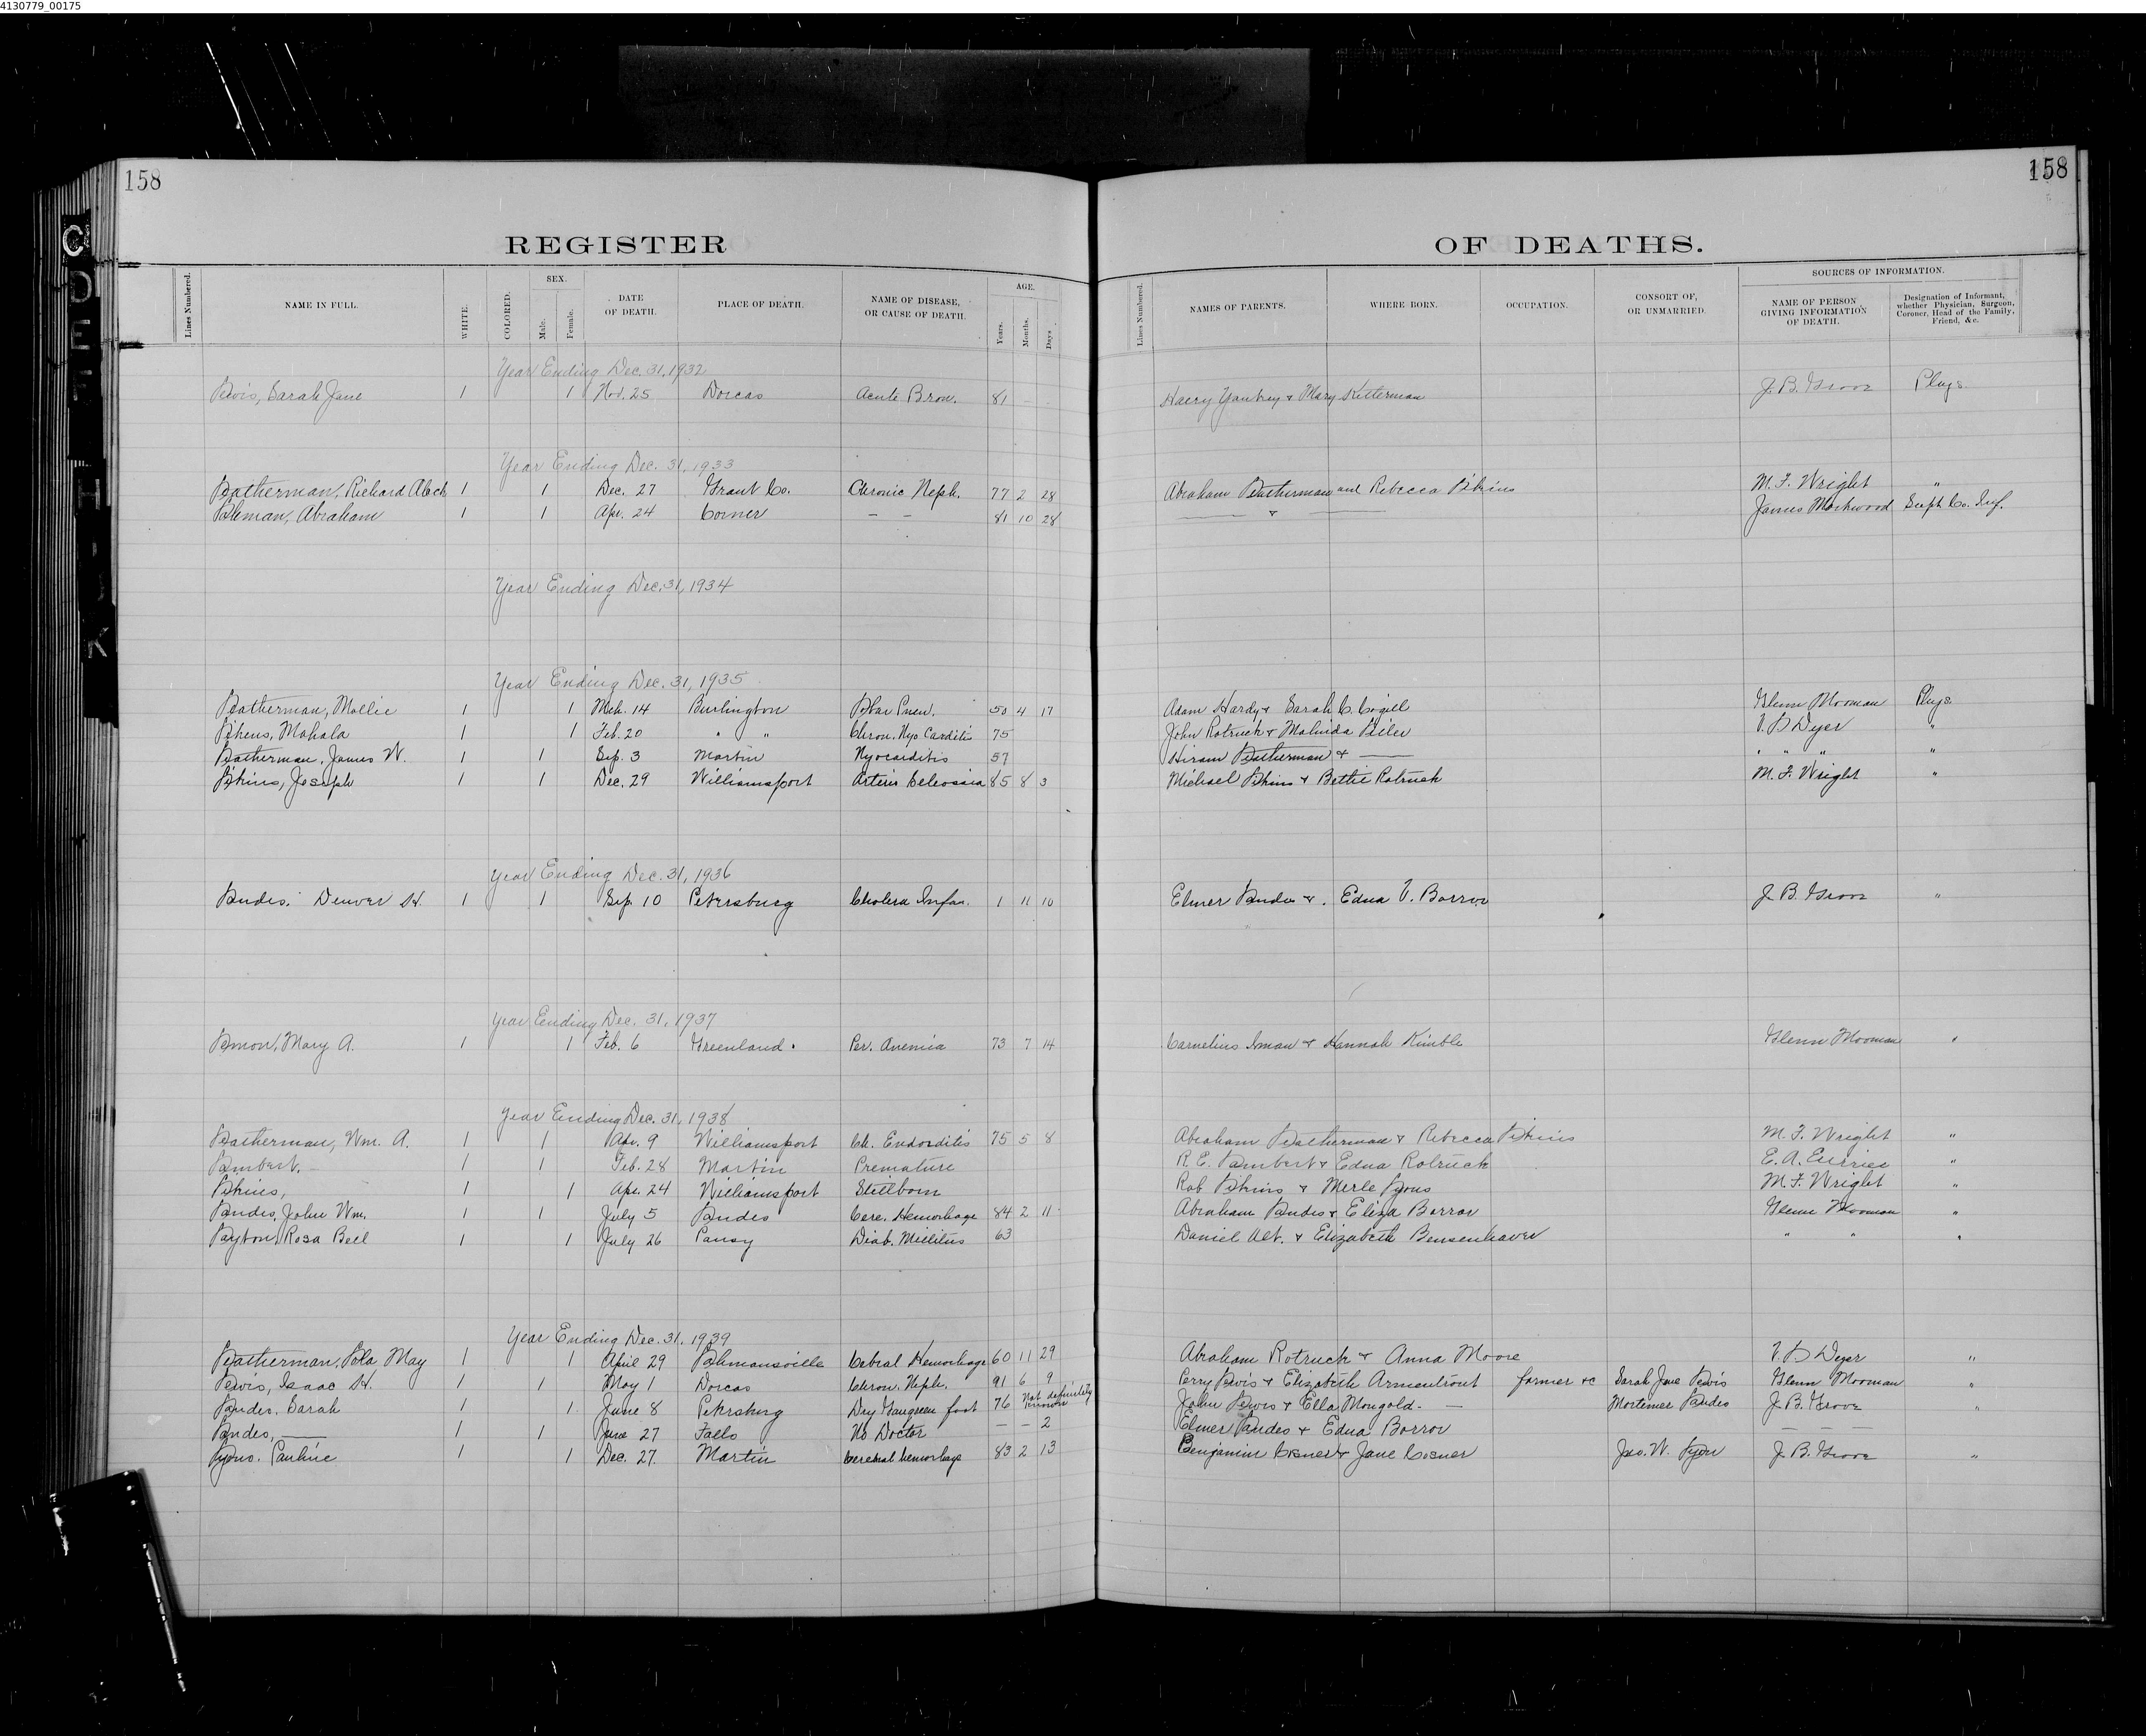 4130779_00175
158
158
REGISTER OF DEATHS.
Lines Numbered. NAME IN FULL. WHITE. COLORED. SEX. Male. Female. DATE OF DEATH. PLACE OF DEATH. NAME OF DISEASE, OR CAUSE OF DEATH. AGE. Years. Months. Days. Lines Numbered. NAMES OF PARENTS. WHERE BORN. OCCUPATION. CONSORT OF, OR UNMARRIED. SOURCES OF INFORMATION. NAME OF PERSON GIVING INFORMATION OF DEATH. Designation of Informant, whether Physician, Surgeon, Coroner, Head of the Family, Friend, &c.
Year Ending Dec. 31, 1932
Lewis, Sarah Jane 1 1 Nov. 25 Dorcas Acute Bron. 81 Harry Yankey & Mary Ketterman J. B. Grove Phys
Year Ending Dec. 31, 1933
Leatherman, Richard 1 1 Dec. 27 Grant Co. Chronic Neph. 77 2 28 Abraham Leatherman and Rebecca Likins M. F. Wright "
Lahman, Abraham 1 1 Apr. 24 Corner — — 81 10 28 — & — James Markwood Supt. Co. Inf.
Year Ending Dec. 31, 1934
Year Ending Dec. 31, 1935
Leatherman, Mollie 1 1 Mch. 14 Burlington Lobar Pneu. 50 4 17 Adam Hardy & Sarah C. Cogill Glenn Mooman Phys
Likens, Mahala 1 1 Feb. 20 " " Chron. Myo Carditis 75 John Rotruck & Malinda V. L. Dyer "
Leatherman, James W. 1 1 Sep. 3 Martin Myocarditis 57 Hiram Leatherman & — " " " "
Likins, Joseph 1 1 Dec. 29 Williamsport Arterio 85 8 3 Michael Likins & Bettie Rotruck M. F. Wright "
Year Ending Dec. 31, 1936
Landes, Denver H. 1 1 Sep. 10 Petersburg Cholera Infan. 1 11 10 Elmer Landes & Edna V. Borror J. B. Grove "
Year Ending Dec. 31, 1937
Lemon, Mary A. 1 1 Feb. 6 Greenland. Per. Anemia 73 7 14 Cornelius Iman & Hannah Kimble Glenn Mooman "
Year Ending Dec. 31, 1938
Leatherman, Wm. A. 1 1 Apr. 9 Williamsport Ch. Endorditis 75 5 8 Abraham Leatherman & Rebecca Likins M. F. Wright "
Lambert, — 1 1 Feb. 28 Martin Premature R. E. Lambert & Edna Rotruck E. A. "
Likins, 1 1 Apr. 24 Williamsport Stillborn Rob Likins & Merle Lyons M. F. Wright "
Landes, John Wm. 1 1 July 5 Landes Cere. Hemorhage 84 2 11 Abraham Landes & Eliza Borror Glenn Mooman "
Layton, Rosa Bell 1 1 July 26 Pansy Diab. Mellitus 63 Daniel Alt. & Elizabeth Bensenhaver " " "
Year Ending Dec. 31, 1939
Leatherman, Lola May 1 1 April 29 Lahmansville Cebral Hemorhage 60 11 29 Abraham Rotruck & Anna Moore V. L. Dyer "
Lewis, Isaac H. 1 1 May 1 Dorcas Chron. Neph. 91 6 9 Perry Lewis & Elizabeth Armentrout farmer &c Sarah Jane Lewis Glenn Mooman "
Landes, Sarah 1 1 June 8 Petersburg Dry Gangreen foot 76 Not definitely known John Lewis & Ella Mongold. — Mortimer Landes J. B. Grove "
Landes, — 1 1 June 27 Falls No Doctor — — 2 Elmer Landes & Edna Borror — —
Lyons, Pauline 1 1 Dec. 27. Martin Cerebral hemorhage 83 2 13 Benjamin Cosner & Jane Cosner Jas. W. Lyon J. B. Grove "
C
D
E
F
H
K